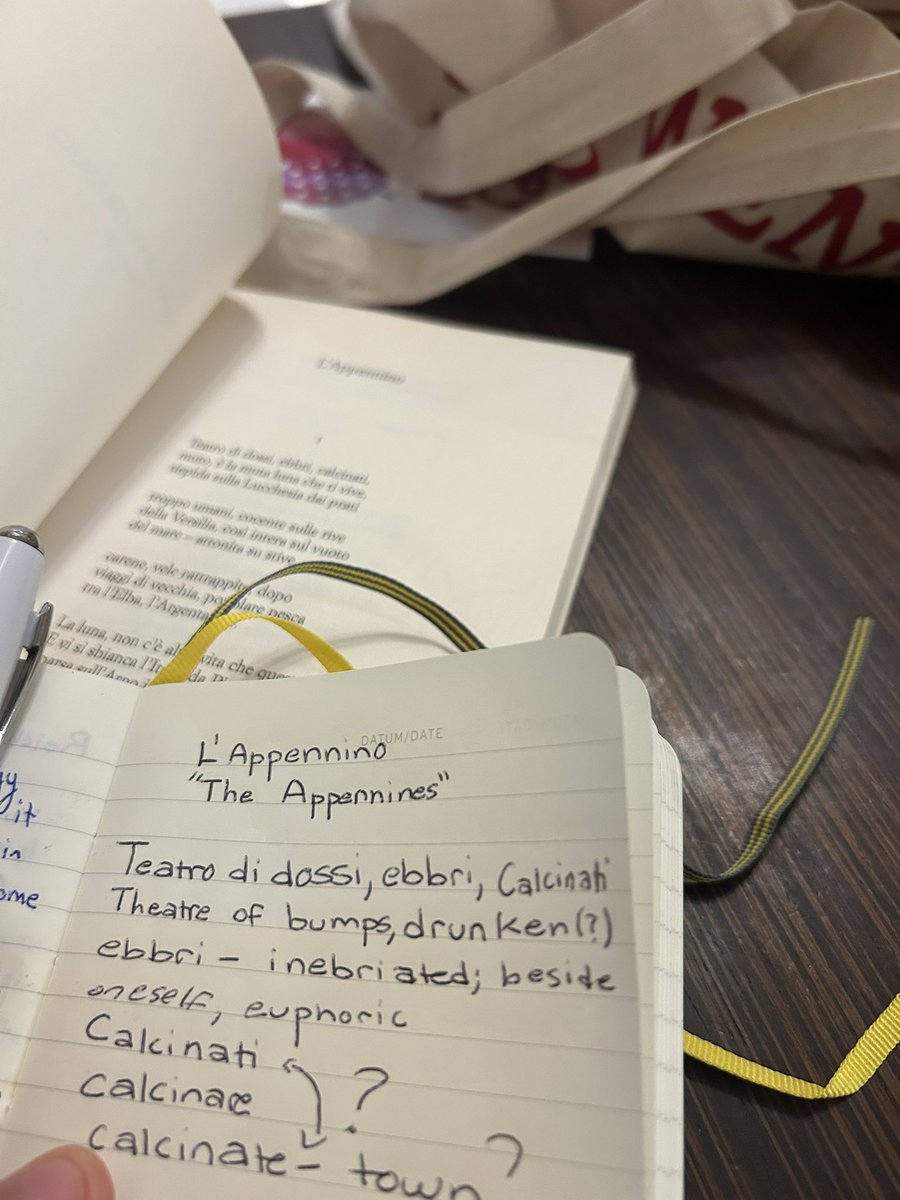 L'Appennino
1
Teatro di dossi, ebbri, calcinati,
muto, è la muta luna che ti vive,
tiepida sulla Lucchesia dai prati
troppo umani, cocente sulle rive
della Versilia, così intera sul vuoto
del mare – attonita su stive,
carene, vele rattrappite, dopo
viaggi di vecchia, popolare pesca
tra l'Elba, l'Argentario
La luna, non c'è altra vita che
E vi si sbianca l'It da
parsa sull'Arno
DATUM/DATE
L'Appennino
"The Appennines"
Teatro di dossi, ebbri, Calcinati
Theatre of bumps, drunken(?)
ebbri – inebriated; beside
oneself, euphoric
Calcinati
Calcinare ?
Calcinate – town ?
it
in
ome